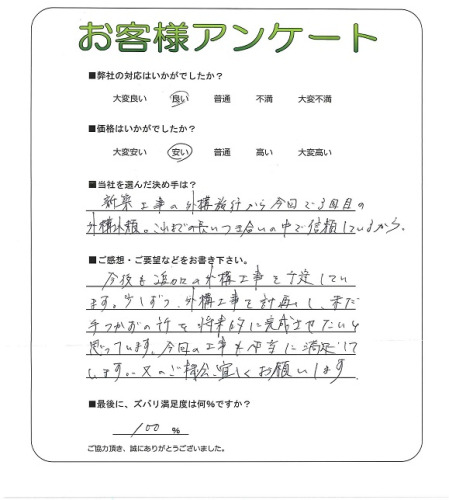 お客様アンケート
■弊社の対応はいかがでしたか？
大変良い 良い 普通 不満 大変不満
■価格はいかがでしたか？
大変安い 安い 普通 高い 大変高い
■当社を選んだ決め手は？
新築工事の外構施行から今回で3回目の
外構依頼。これまでの長いつき合いの中で信頼しているから。
■ご感想・ご要望などをお書き下さい。
今後も追加の外構工事を予定してい
ます。少しずつ、外構工事を計画し、まだ
手つかずの所を将来的に完成させたいと
思っています。今回の工事も非常に満足して
います。又のご機会、宜しくお願いします
■最後に、ズバリ満足度は何%ですか？
100 %
ご協力頂き、誠にありがとうございました。